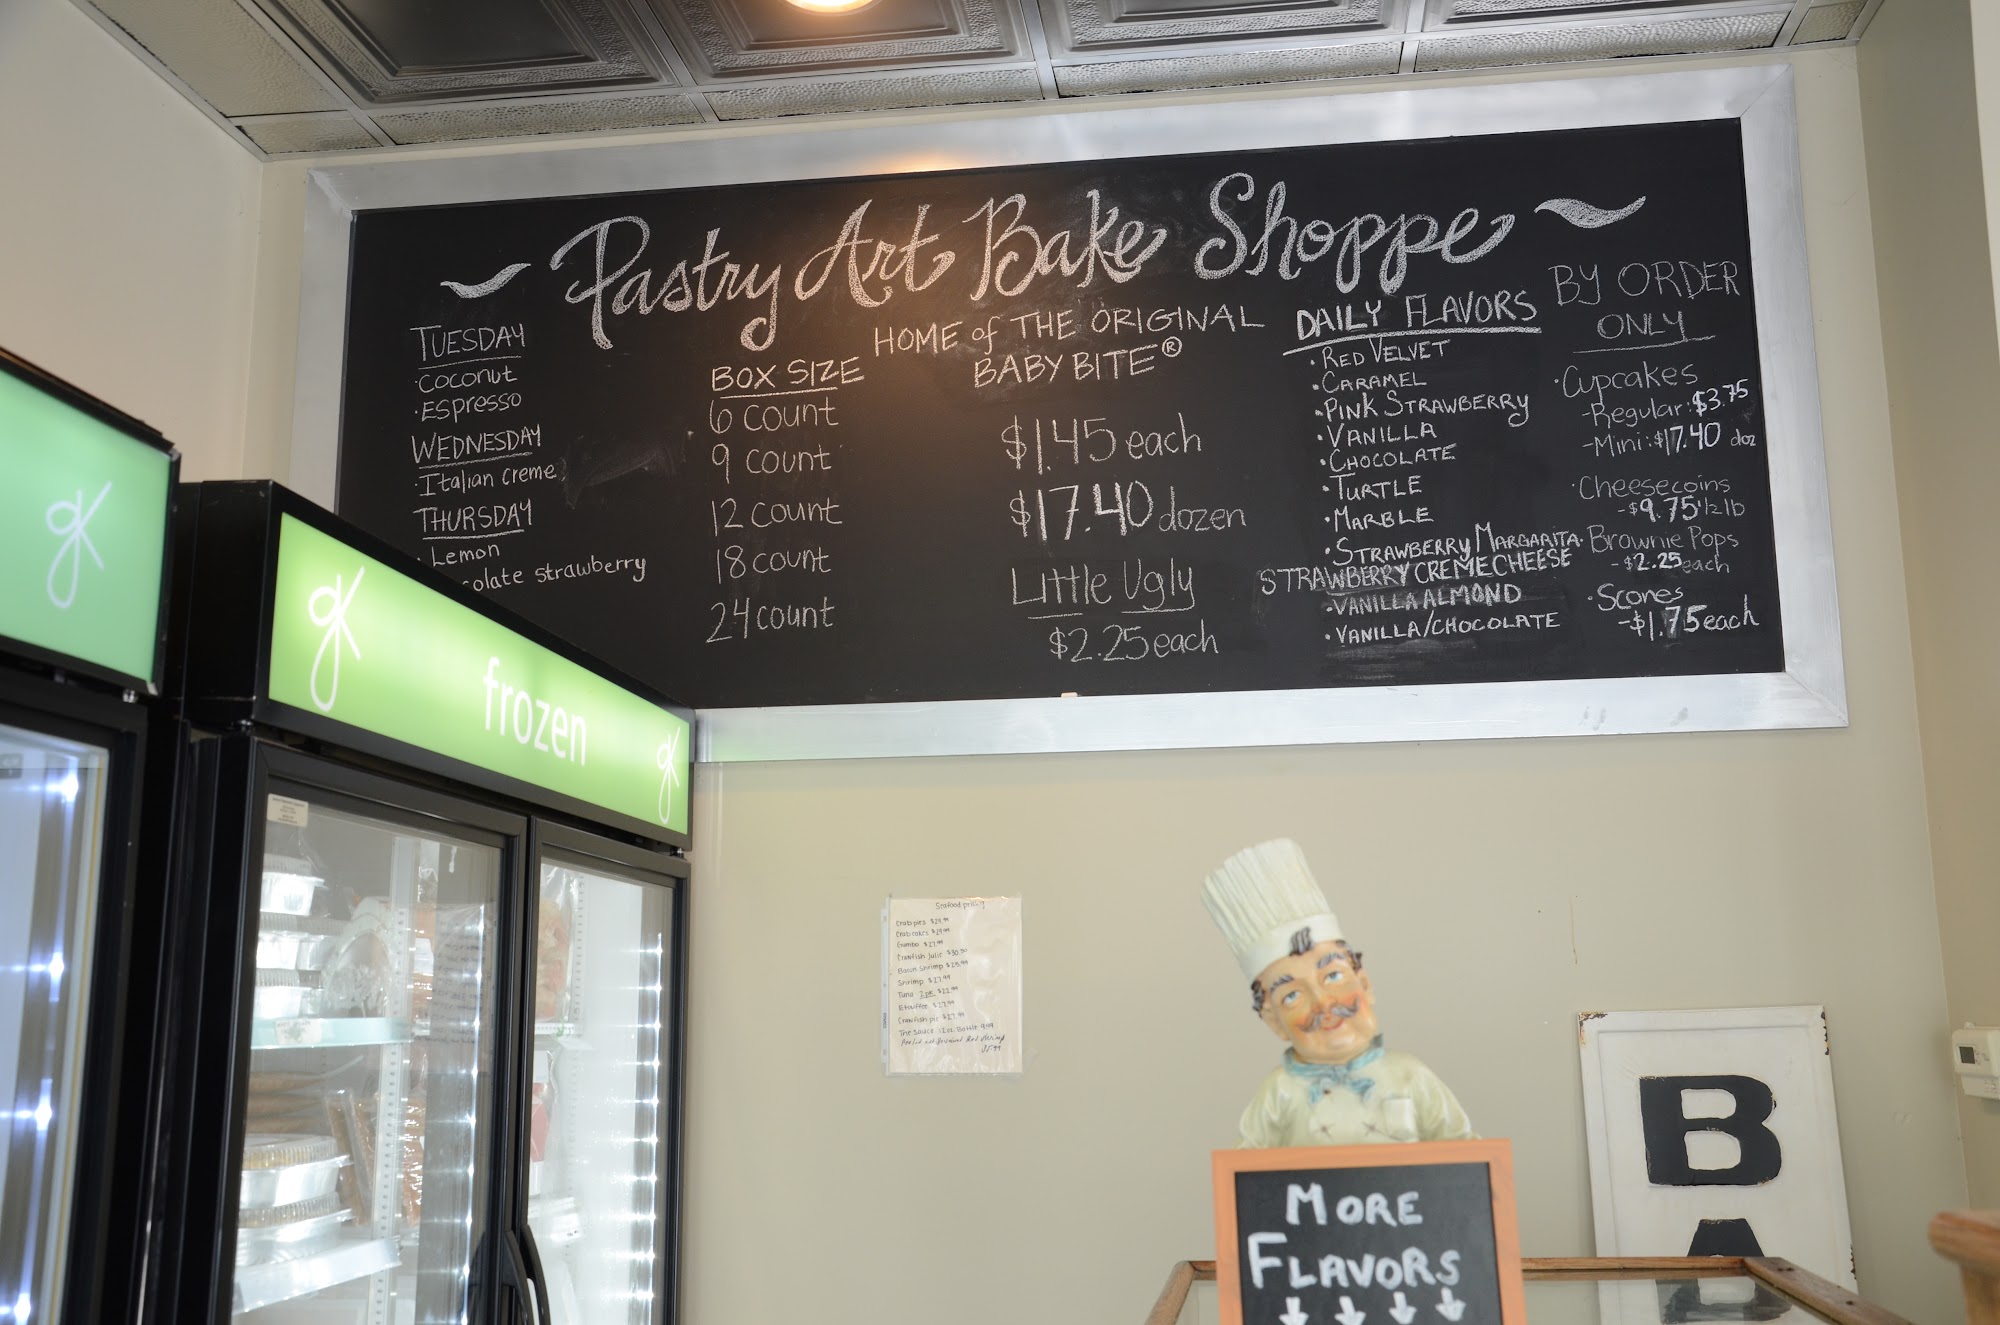 Pastry Art Bake Shoppe
HOME of THE ORIGINAL
BABY BITE®
TUESDAY
·COCONUT
·ESPRESSO
WEDNESDAY
·Italian creme
THURSDAY
·Lemon
colate strawberry
BOX SIZE
6 count
9 count
12 count
18 count
24 count
$1.45 each
$17.40 dozen
Little Ugly
$2.25 each
DAILY FLAVORS
·RED VELVET
·CARAMEL
·PINK STRAWBERRY
·VANILLA
·CHOCOLATE
·TURTLE
·MARBLE
·STRAWBERRY MARGARITA
STRAWBERRY CREMECHEESE
·VANILLA ALMOND
·VANILLA/CHOCOLATE
BY ORDER
ONLY
·Cupcakes
-Regular: $3.75
-Mini: $17.40 doz
·Cheesecoins
-$9.75 1/2 lb
·Brownie Pops
-$2.25 each
·Scones
-$1.75 each
gk frozen gk
gk
Seafood pricing
Crab pies $29.99
Crab cakes $29.99
Gumbo $27.99
Crawfish Julie $30.50
Bacon Shrimp $25.99
Shrimp $27.99
Tuna 2 pk. $22.99
Etouffee $27.99
Crawfish pie $27.99
The Sauce 12oz. Bottle 9.99
MORE
FLAVORS
B
A